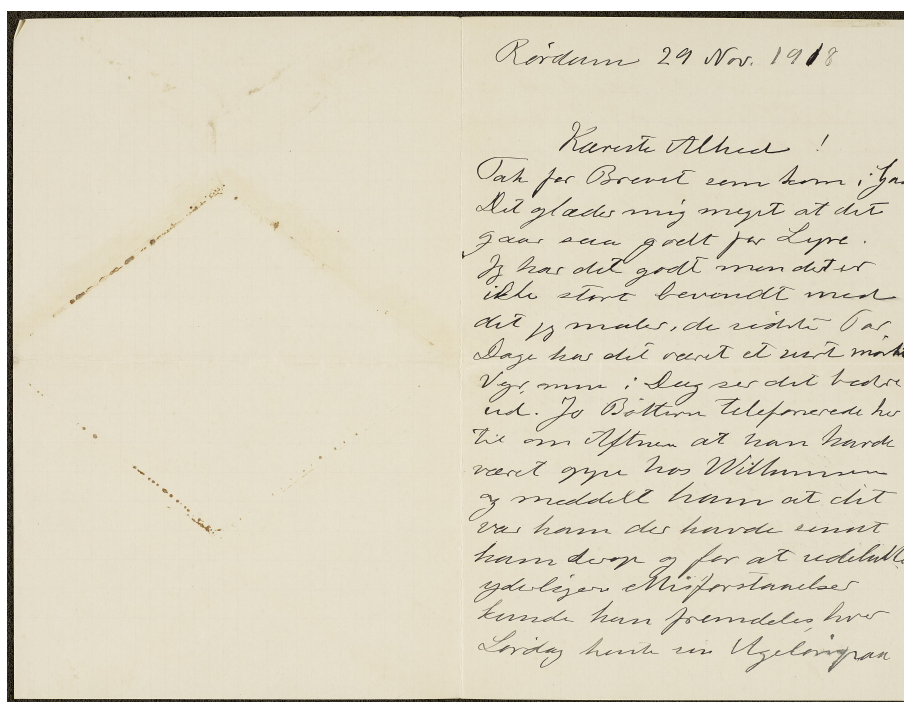 Rørdam 29 Nov. 1918
Kæreste Alhed!
Tak for Brevet som kom i
Det glæder mig meget at det
gaar saa godt for Lysse.
Jeg har det godt men det er
ikke stort bevendt med
det jeg maler, de sidste Par
Dage har det været et surt mørkt
Vejr, men i Dag ser det bedre
ud. Jo Bøttern telefonerede her
til om Aftnen at han havde
været oppe hos Willumsen
og meddelt ham at det
var ham der havde sendt
ham derop og for at udelukke
yderligere Misforstaaelser
kunde han fremdeles hver
Lørdag hente sin Ugeløn paa